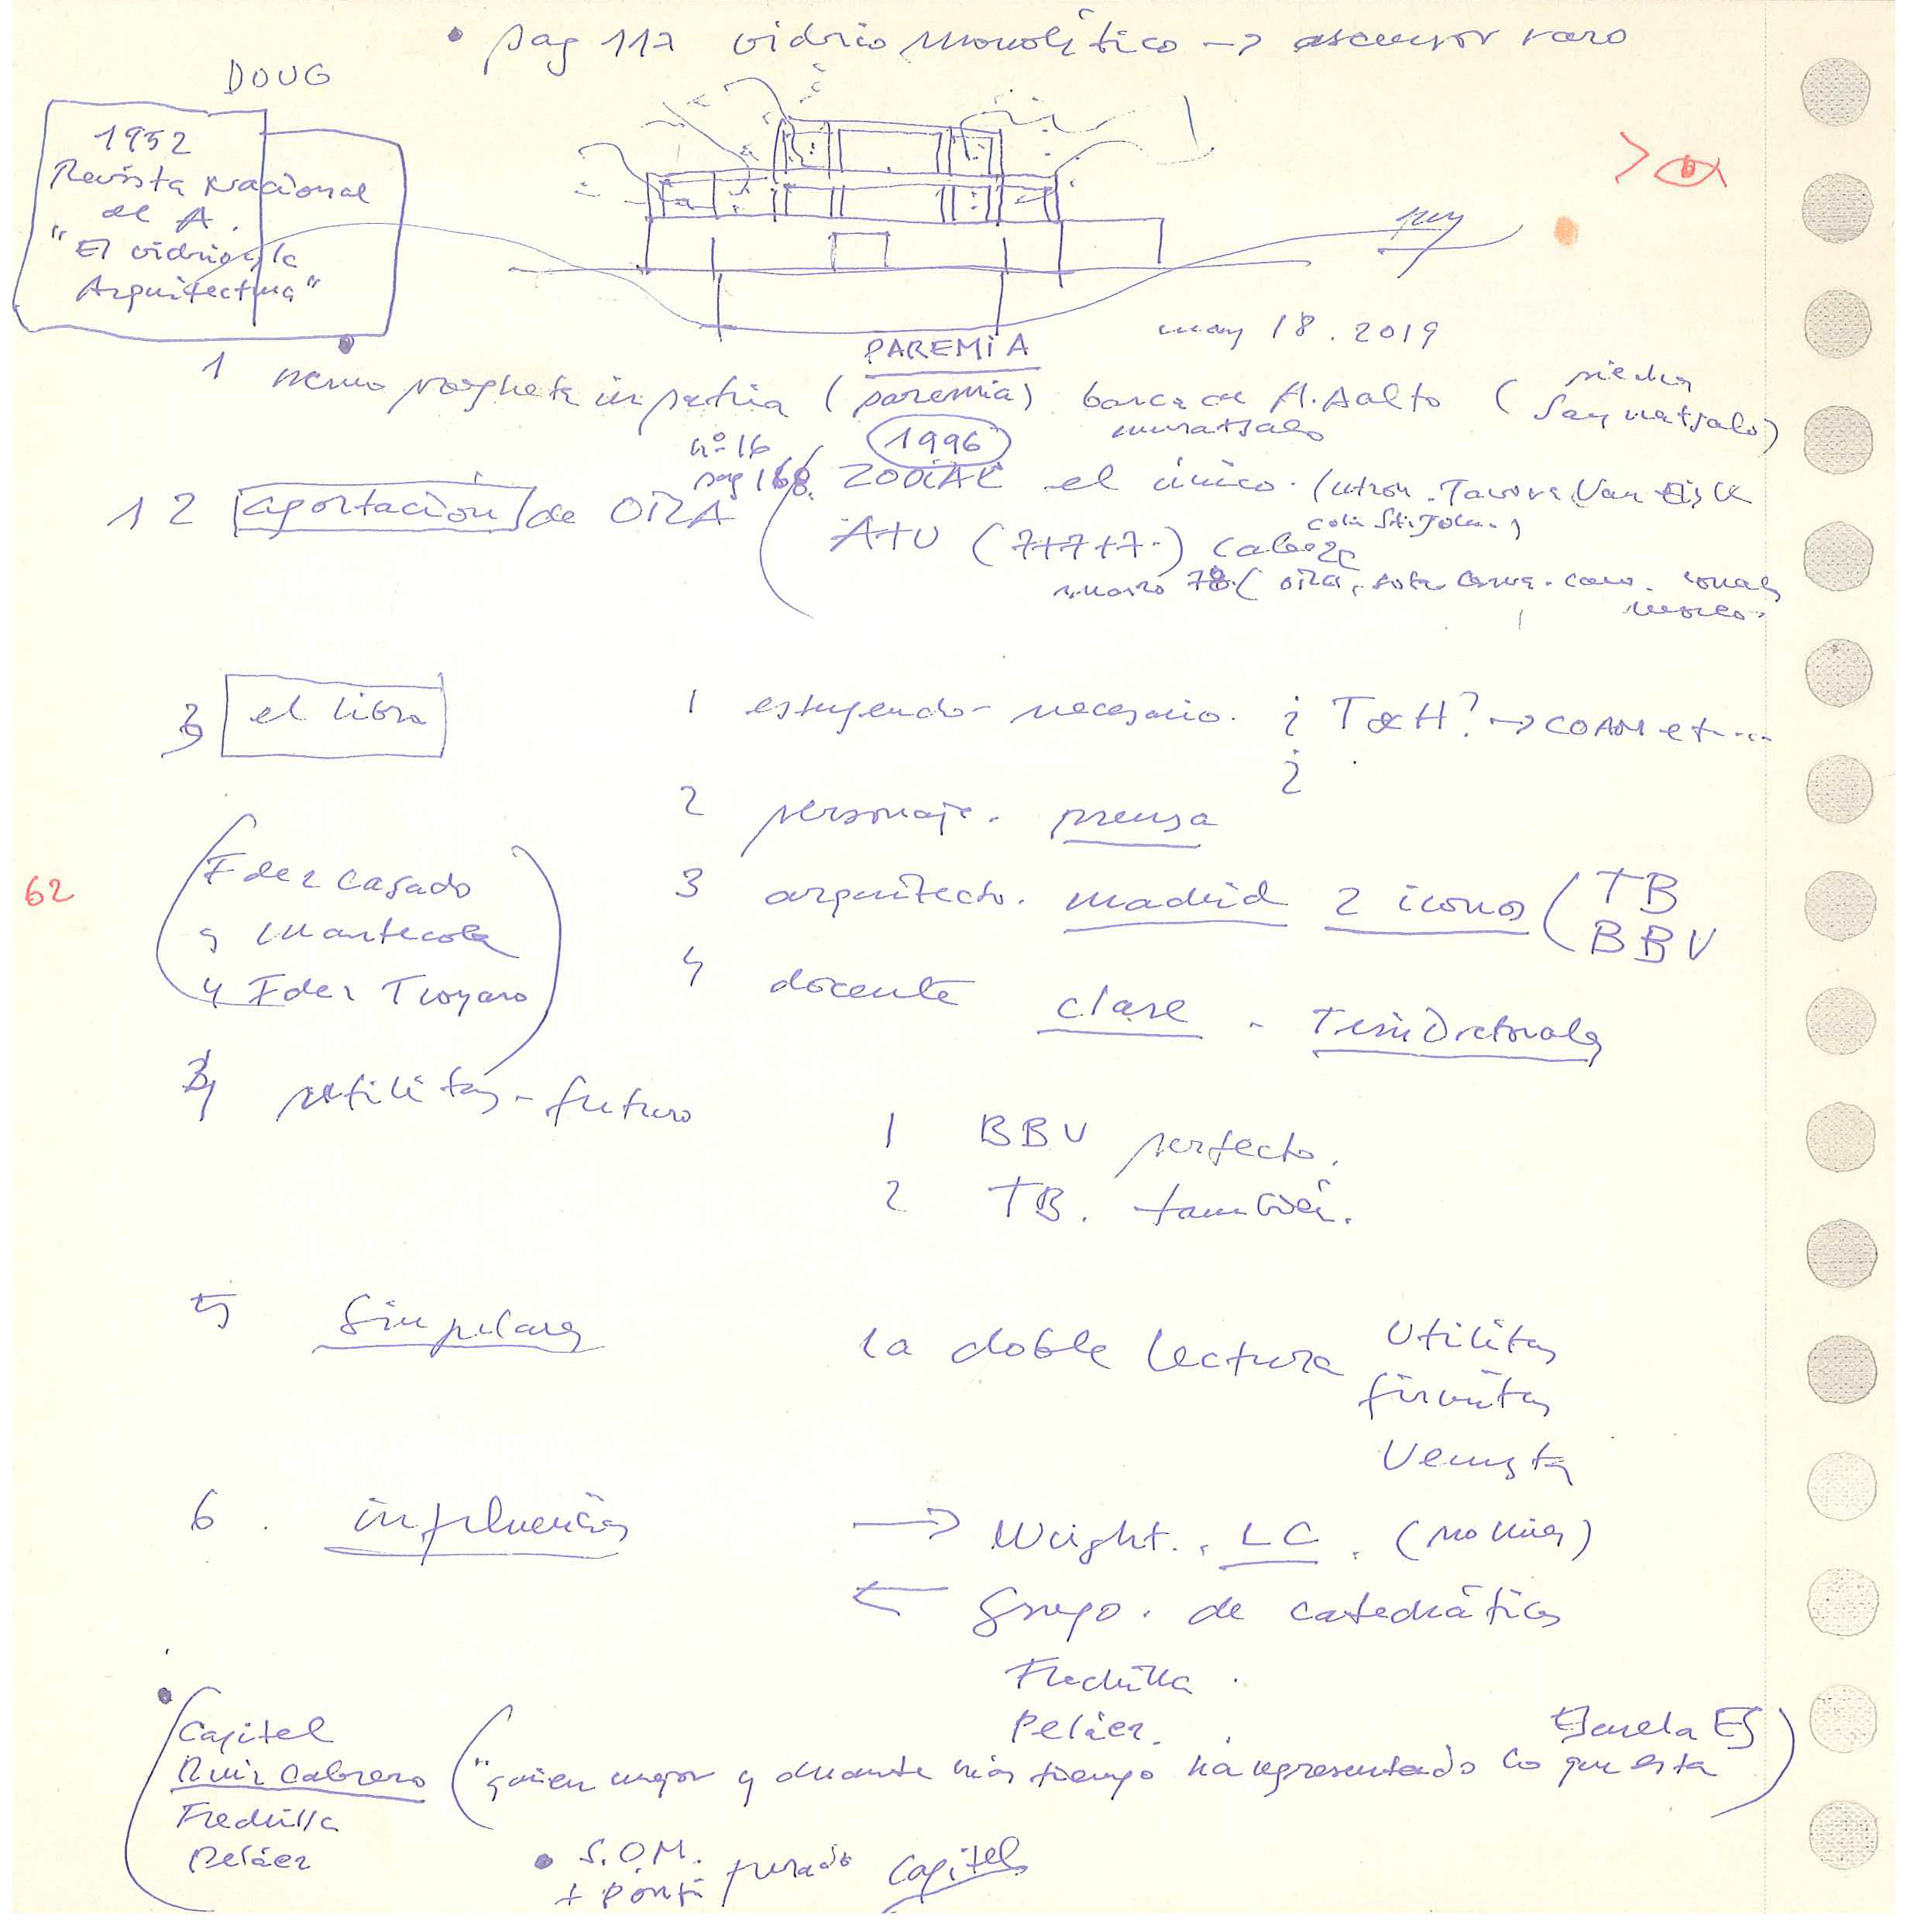 • pag 117 vidrio monolítico -> ascensor raro
DOUG
1952
Revista Nacional
de A.
"El vidrio y la
Arquitectura"
may 18. 2019
PAREMIA
1 nemo propheta in patria (paremia) barca de A. Aalto (
muratsalo
piedra
Saynatsalo)
nº 16
pag 168.
1996
1 2 aportación de OIZA
ZODIAC el único. (utzon. Tavora, Van Eyck
A+U (7+7+7.) cabeza
marzo 78 ( oiza,
3 el libro
1 estupendo - necesario. ¿ T&H? -> COAM et...
¿
2 personaje. prensa
62
(Fdez Casado
y Manterola
y Fdez Troyano)
3 arquitecto. madrid 2 iconos (TB
BBV
4 docente clase - Tesis Doctorales
4 utilitas - futuro
1 BBV perfecto.
2 TB. también.
5 Sin pilares
la doble lectura Utilitas
firmitas
Venustas
6. influencias
-> Wright. , LC. (no Mies)
<- Grupo. de catedráticos
Frechilla.
Peláez.
• (Capitel
Ruiz Cabrero ("quien mejor y durante más tiempo ha representado lo que esta
Escuela ES)
Frechilla
Peláez
• S.O.M.
+ Ponti jurado Capitel